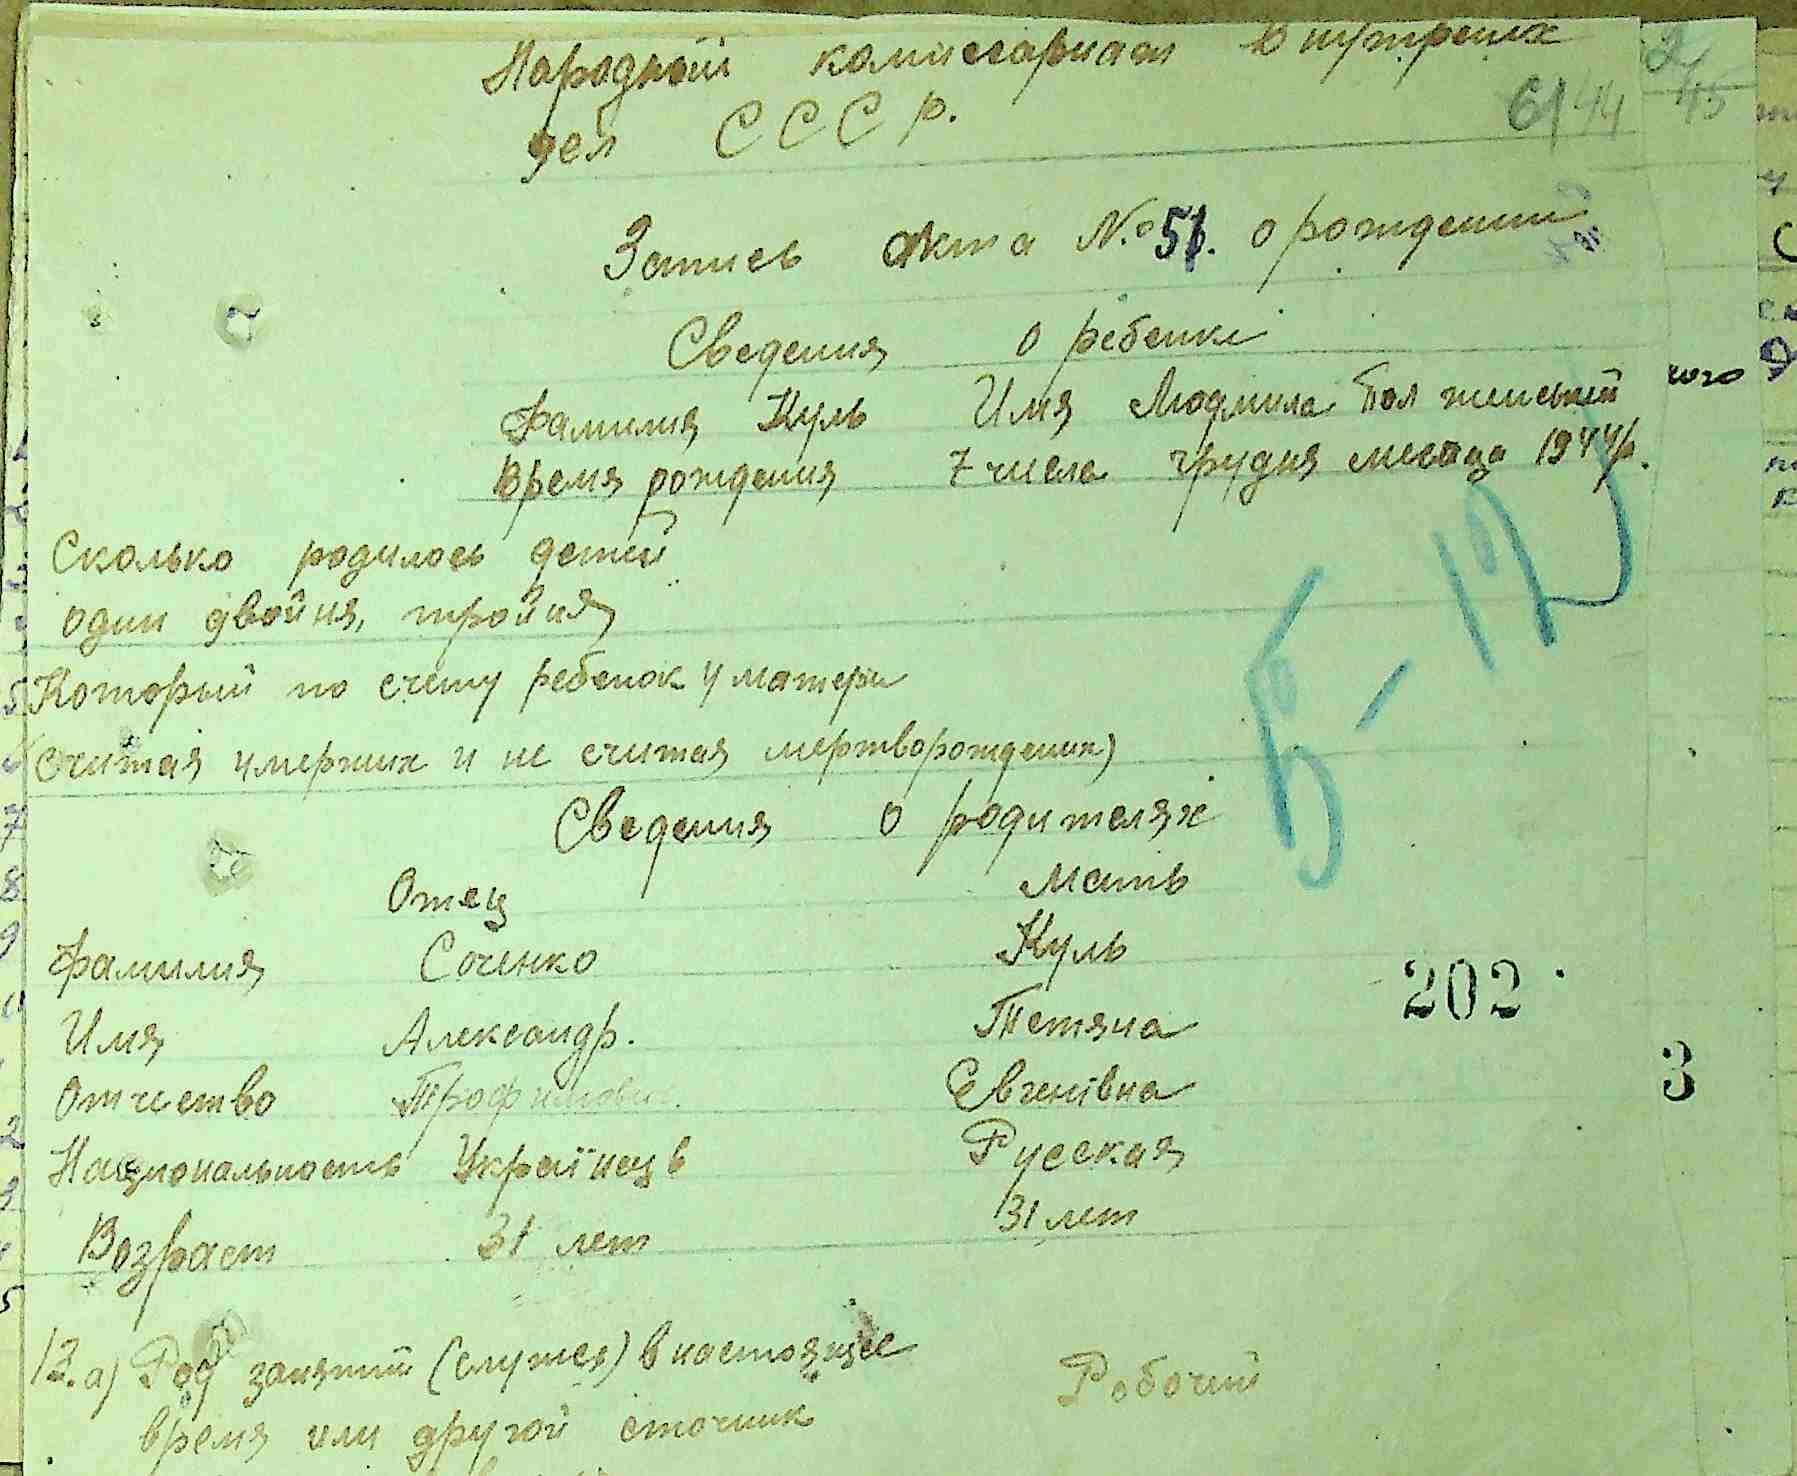 Народный комиссариат Внутрених
дел СССр.
6/44
Запись Акта №51. о рождении
Сведения о ребенке
Фамилия Куль Имя Людмила Пол женский
Время рождения 7 числа грудня месяца 1944р.
Сколько родилось детей
один двойня, тройня
Который по счету ребенок у матери
(считая умерших и не считая мертворождених)
Б-12
Сведения о родителях
Отец Мать
Фамилия Соченко Куль
202
Имя Александр. Тетяна
3
Отчество Трофимович. Євгенівна
Национальность Українець Русская
Возраст 31 лет 31 лет
13. а) Род занятий (служея) в настоящее Робочий
время или другой сточник